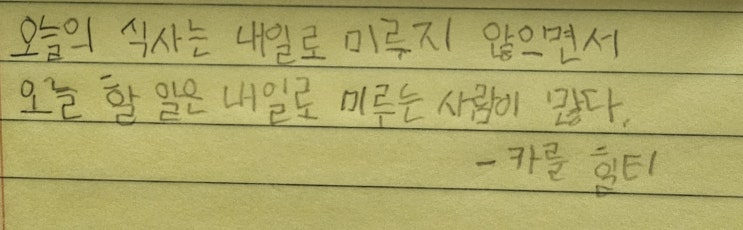 오늘의 식사는 내일로 미루지 않으면서
오늘 할 일은 내일로 미루는 사람이 많다.
- 카를 힐티